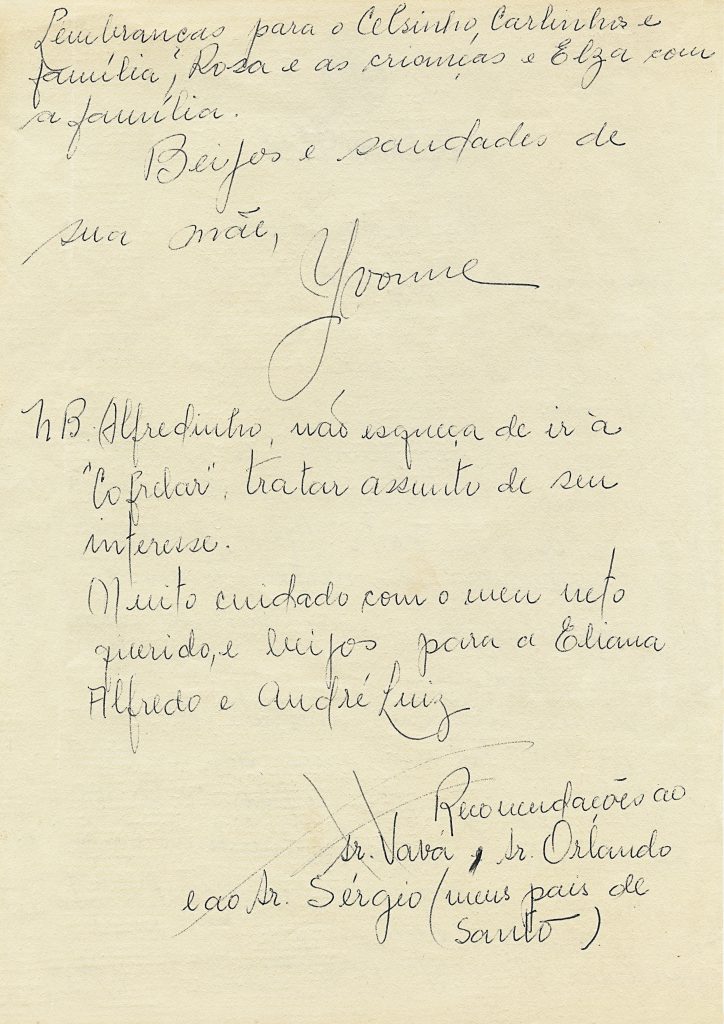 Lembranças para o Celsinho, Carlinhos e
família, Rosa e as crianças e Elza com
a família.
Beijos e saudades de
sua mãe,
Yvonne
NB. Alfredinho, não esqueça de ir à
"Cofrelar", tratar assunto de seu
interesse.
Muito cuidado com o meu neto
querido, e beijos para a Eliana
Alfredo e André Luiz
Recomendações ao
Sr. Vavá, Sr. Orlando
e ao Sr. Sérgio (meus pais de
Santo)